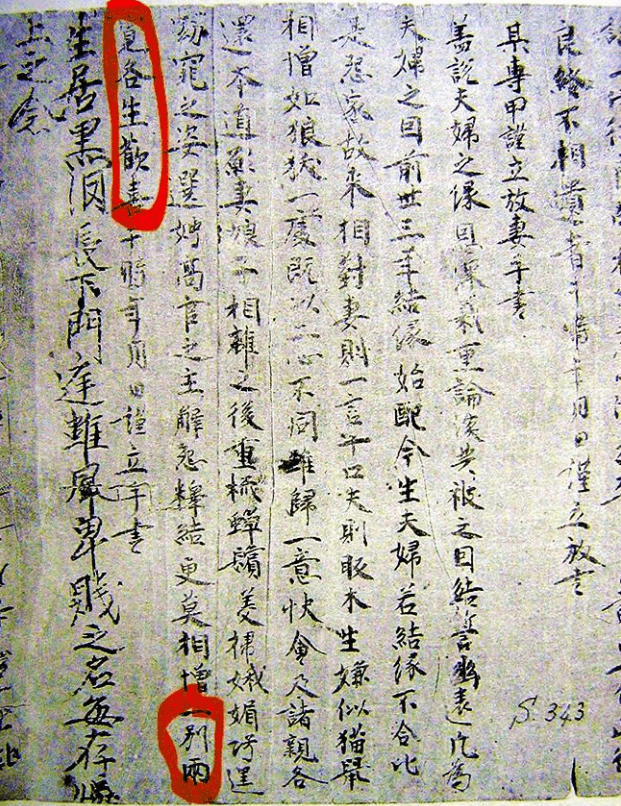 良緣不相遺者于時年月日謹立放書
某專甲謹立放妻手書
蓋說夫婦之緣恩深義重論談共被之因結誓幽遠凡為
夫婦之因前世三年結緣始配今生夫婦若結緣不合比
是怨家故來相對妻則一言十口夫則販木生嫌似猫鼠
相憎如狼犺一處既以二心不同難歸一意快會及諸親各
還本道願妻娘子相離之後重梳蟬鬢美裙娥媚巧逞
窈窕之姿選娉高官之主解怨釋結更莫相憎一別兩
寬各生歡喜于時年月日謹立手書
生居黑長下門庭難屏卑賤之名每存歸
上之念
S. 343